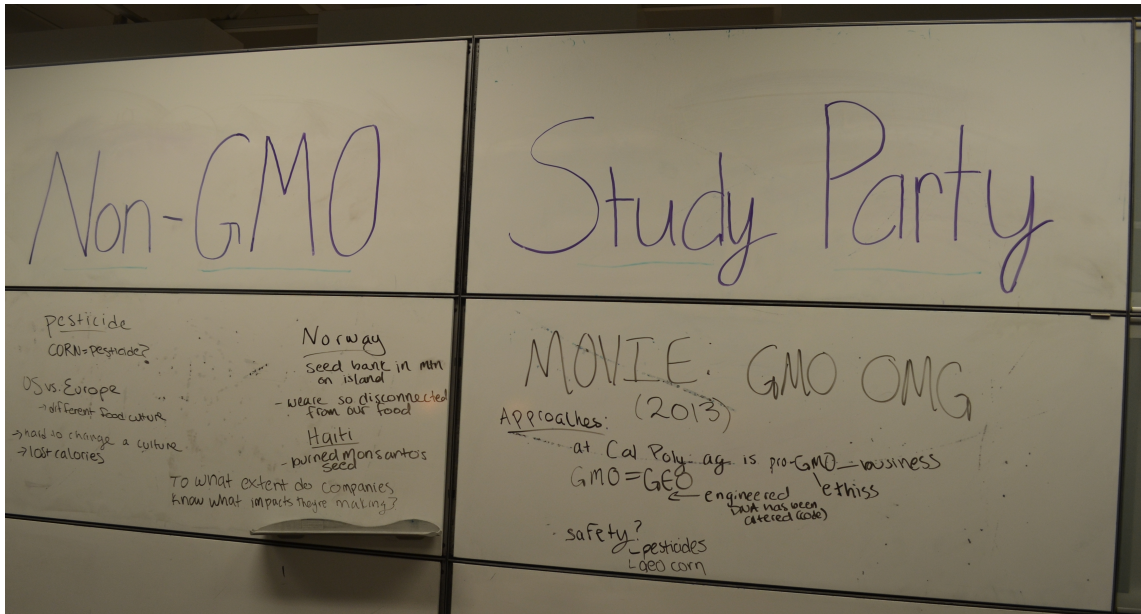 Non-GMO Study Party
pesticide
CORN=pesticide?
US vs. Europe
→different food culture
→hard to change a culture
→lost calories
Norway
seed bank in mtn
on island
- we are so disconnected
from our food
Haiti
- burned Monsanto's
seed
To what extent do companies
know what impacts they're making?
MOVIE: GMO OMG
(2013)
Approaches:
at Cal Poly ag is pro-GMO—business
ethiss
GMO=GEO
← engineered
DNA has been
altered (code)
safety?
-pesticides
-geo corn